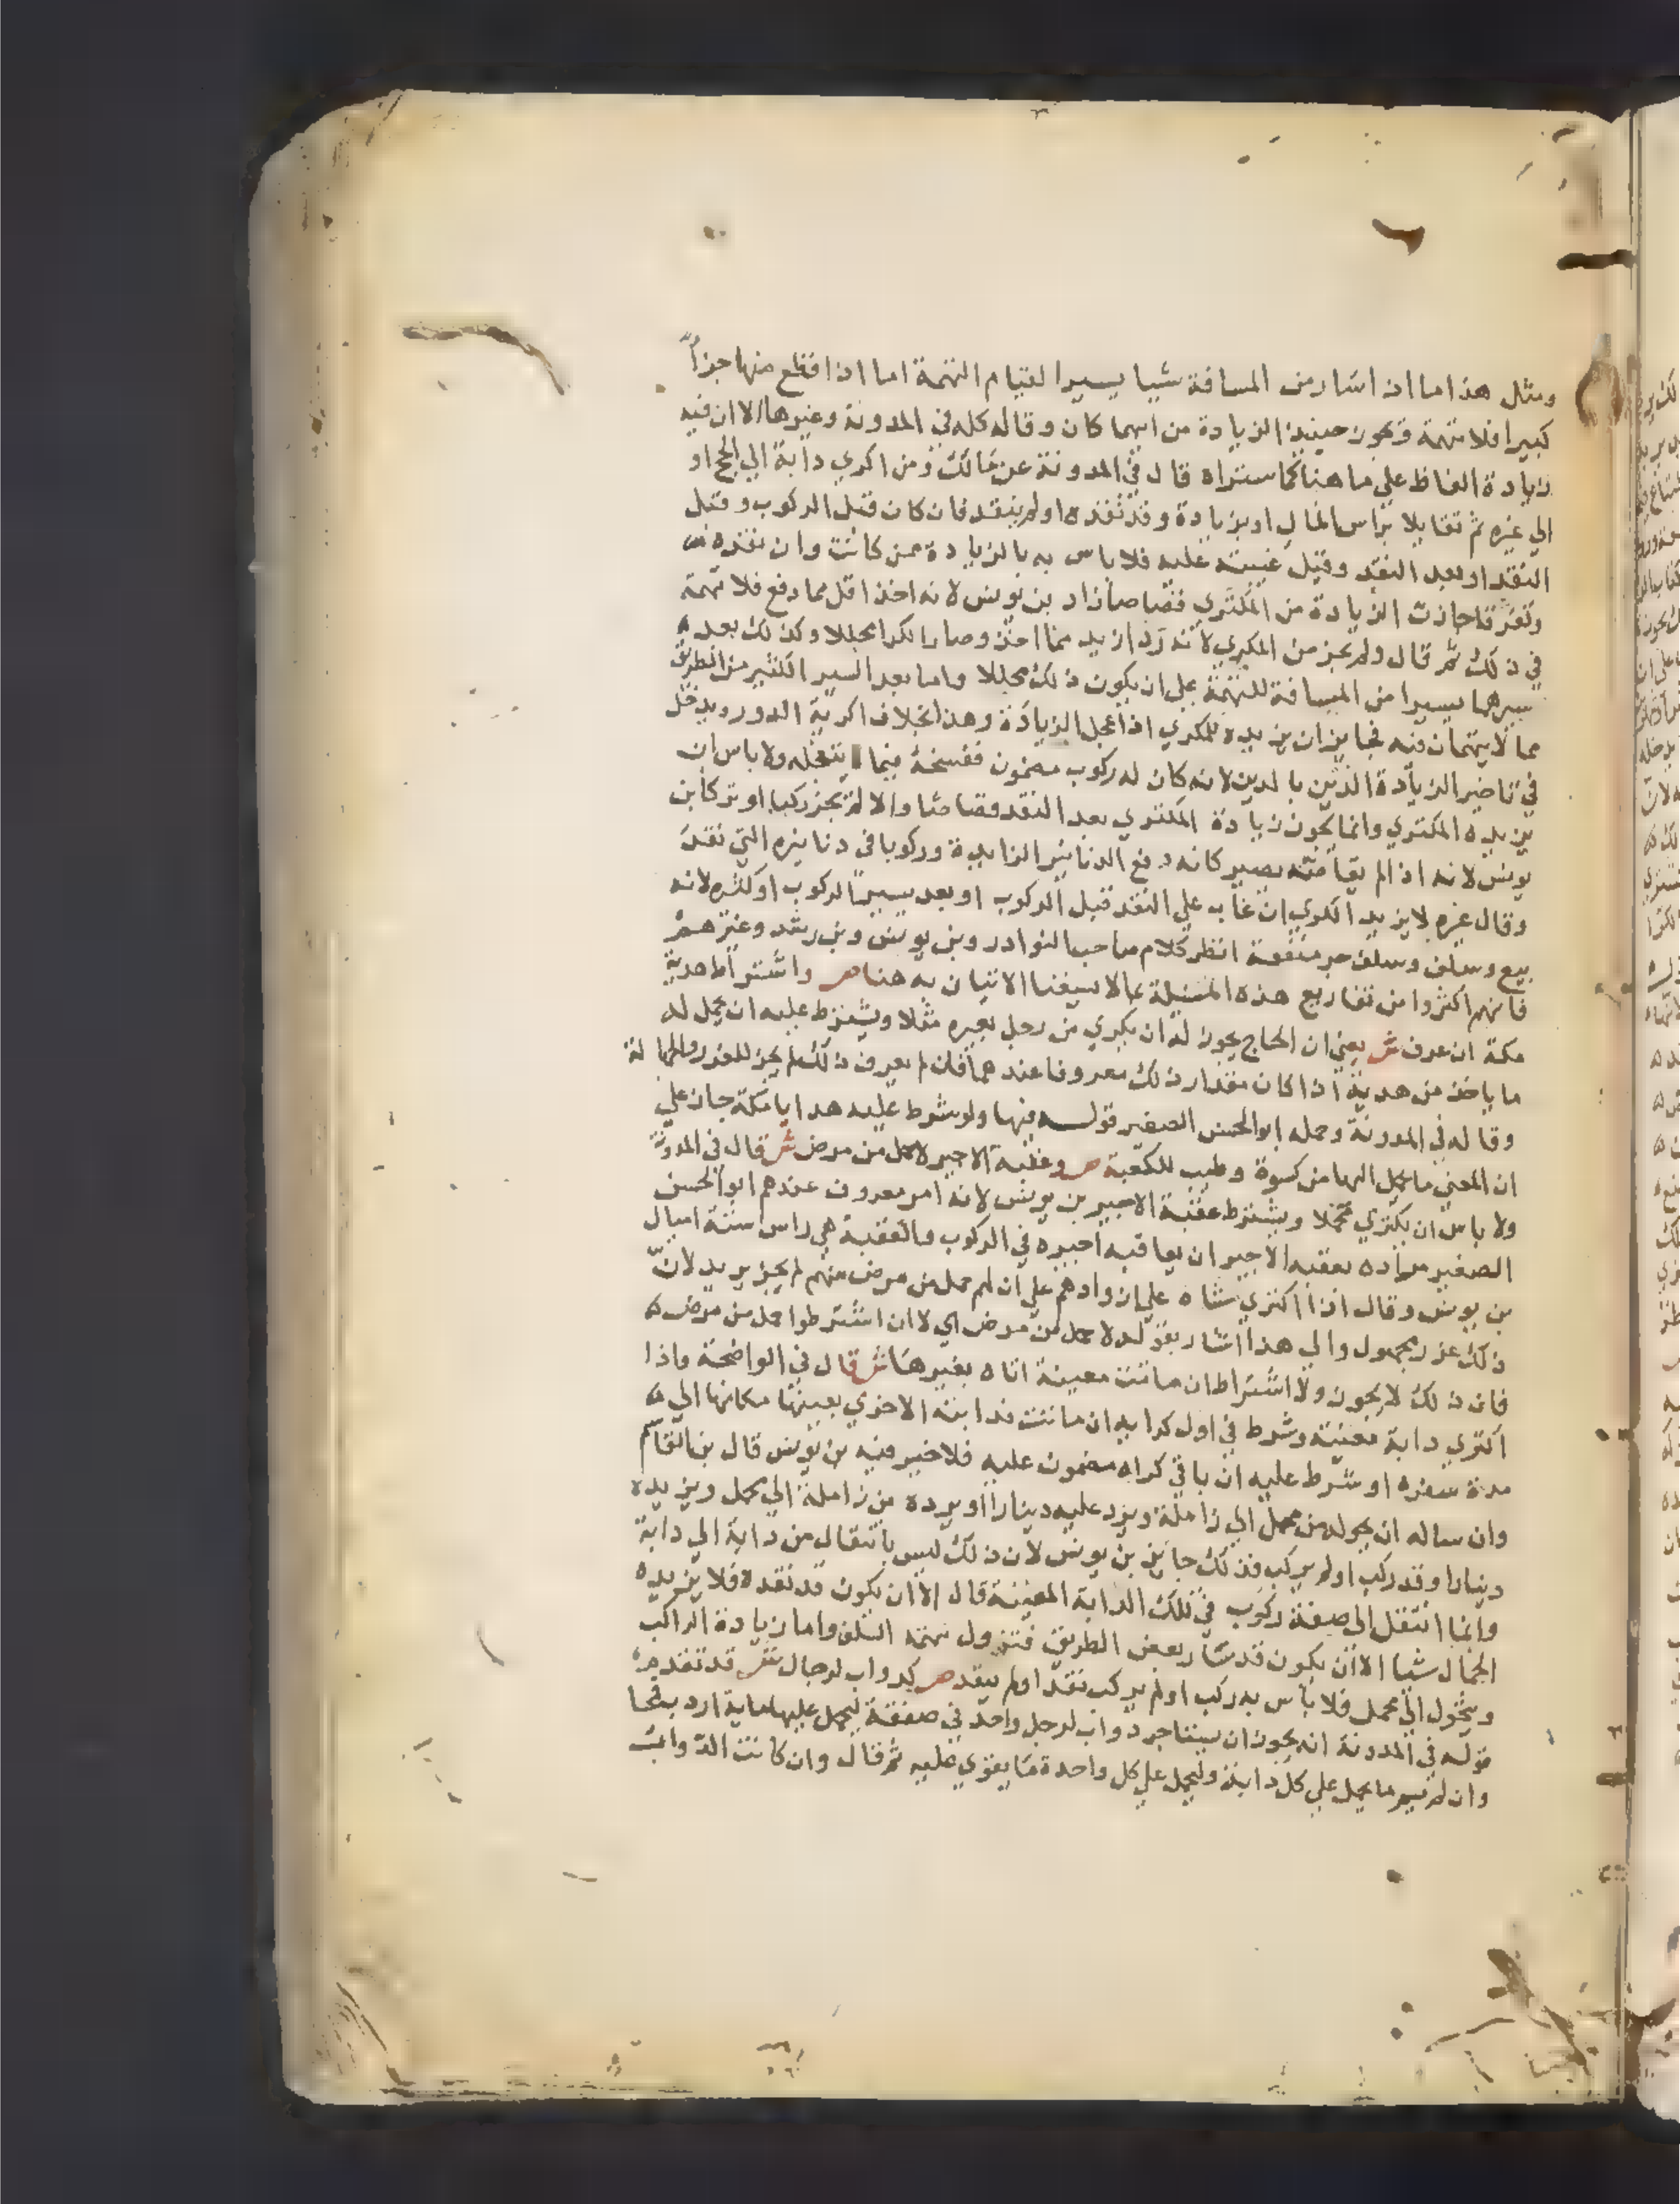 ومثل هذا ما اذا سار من المسافة شيا يسيرا لقيام التهمة اما اذا قطع منها جزاً
كبيرا فلا تهمة وتجوز حينيذ الزيادة من ايهما كان وقاله كله في المدونة وغيرها الا ان فيه
زيادة الفاظ علي ما هنا كما ستراه قال في المدونة عن مالك ومن اكري دابة الي الحج او
الي غيره ثم تقايلا براس المال او بزيادة وقد نقده او لم ينقد فان كان قبل الركوب وقبل
النقد او بعد النقد وقبل غيبته عليه فلا باس به بالزيادة ممن كانت وان نقده
وتفرقا جازت الزيادة من المكتري قصاصا زاد بن يونس لانه اخذ اقل مما دفع فلا تهمة
في ذلك ثم قال ولم يجز من المكري لانه رد ازيد مما اخذ وصار الكرا محللا وكذلك بعد
سيرهما يسيرا من المسافة للتهمة علي ان يكون ذلك محللا واما بعد السير الكثير من الطريق
مما لا يتهمان فيه فجايز ان يزيده المكري اذا عجل الزيادة وهذا بخلاف اكرية الدور ويدخل
في تاخير الزيادة الدين بالدين لانه كان له ركوب مضمون ففسخه فيما يتعجله ولا باس ان
يزيده المكتري وانما تجوز زيادة المكتري بعد النقد قصاصا والا لم تجز ركبا او تركا بن
يونس لانه اذا لم يقاصه يصير كانه دفع الدنانير الزايدة وركوبا في دنانيره التي نقد
وقال غيره لا يزيد الكري ان غاب علي النقد قبل الركوب او بعد سير الركوب او كثره لانه
بيع وسلف وسلف جر منفعة انظر كلام صاحب النوادر وبن يونس وبن رشد وغيرهم
فانهم اكثروا من تفاريع هذه المسيلة بما لا يسعنا الاتيان به هنا ص واشتراط هدية
مكة ان عرف ش يعني ان الحاج يجوز له ان يكري من رجل بعيره مثلا ويشترط عليه ان يحمل له
ما ياخذ من هدية اذا كان مقدار ذلك معروفا عندهما فان لم يعرف ذلك لم يجز للغرر والجهالة
وقاله في المدونة وحمله ابو الحسن الصغير قوله فيها ولو شرط عليه هدايا مكة جاز علي
ان المعني ما يحمل اليها من كسوة وطيب للكعبة ص وعقبة الاجير لا حمل من مرض ش قال في المدونة
ولا باس ان يكتري محملا ويشترط عقبة الاجير بن يونس لانه امر معروف عندهم ابو الحسن
الصغير مراده بعقبه الاجير ان يعاقبه اجيره في الركوب والعقبة هي راس ستة اميال
بن يونس وقال اذا اكتري مشاة علي ازوادهم علي ان لهم حمل من مرض منهم لم يجز يريد لان
ذلك غرر مجهول والي هذا اشار بقوله لا حمل من مرض اي لا ان اشترطوا حمل من مرض
فان ذلك لا يجوز ولا اشتراط ان ماتت معينة اتاه بغيرها ش قال في الواضحة واذا
اكتري دابة معينة وشرط في اول كرايه ان ماتت فدابته الاخري بعينها مكانها الي
مدة سفره او شرط عليه ان باقي كراه مضمون عليه فلا خير فيه بن يونس قال بن القاسم
وان ساله ان يحوله من محمل الي زاملة ويرد عليه دينارا او يرده من زاملة الي محمل ويزيده
دينارا وقد ركب او لم يركب فذلك جايز بن يونس لان ذلك ليس بانتقال من دابة الي دابة
وانما انتقل الي صفة ركوب في تلك الدابة المعينة قال الا ان يكون قد نقده فلا يزيده
الجمال شيا الا ان يكون قد سار بعض الطريق فتزول تهمة السلف واما زيادة الراكب
ويتحول الي محمل فلا باس به ركب او لم يركب نقد او لم ينقد ص كدواب لرجال ش قد تقدم
قوله في المدونة انه يجوز ان يستاجر دواب لرجل واحد في صفقة ليحمل عليها ماية اردب قمحا
وان لم يسم ما يحمل علي كل دابة وليحمل علي كل واحدة ما يقوي عليه ثم قال وان كانت الدواب